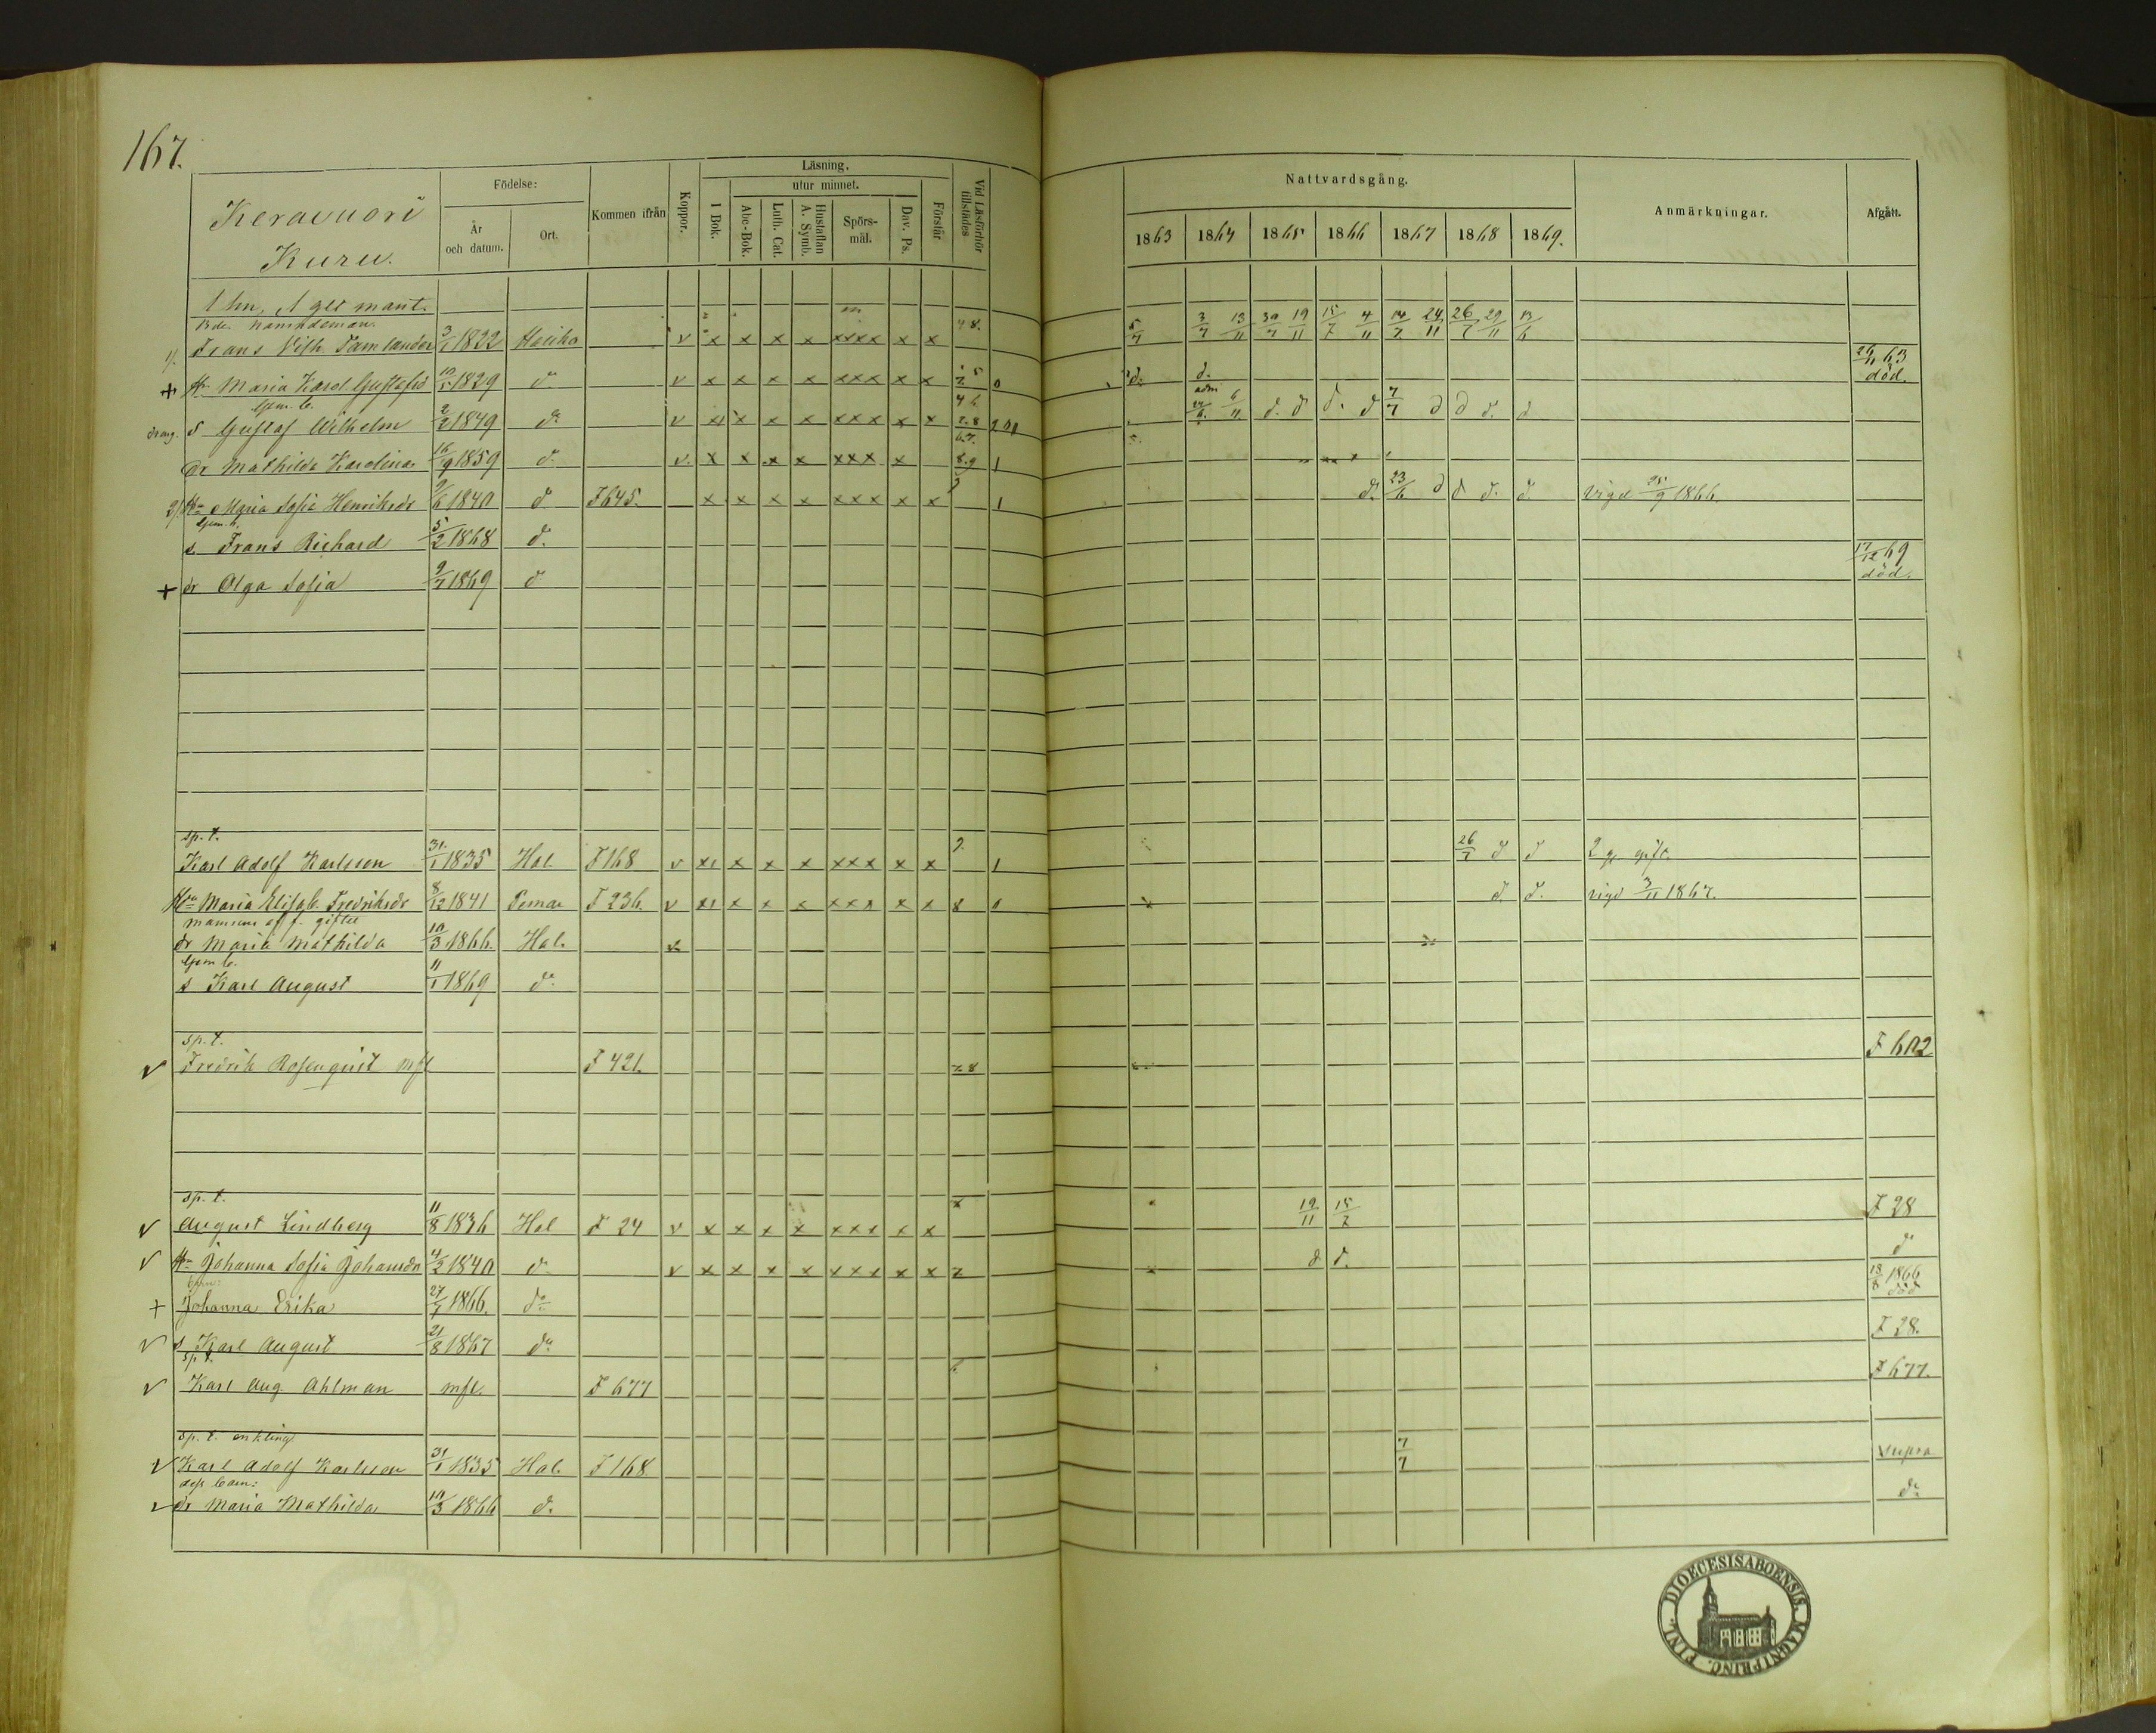 167.
Keravuori
Kuru.
Födelse:
År och datum.
Ort.
Kommen ifrån
Koppor.
Läsning.
I Bok.
utur minnet.
Abc-Bok.
Luth. Cat.
Hustaflan A. Symb.
Spörs-mål.
Dav. Ps.
Förstår
Vid Läsförhör tillstädes
Nattvardsgång.
1863 1864 1865 1866 1867 1868 1869.
Anmärkningar.
Afgått.
1 hn, mant.
Bde. nämndeman
1/. Frans Vilh. Tamlander 3/1 1822 Haliko v x x x x xxxx x x 5/7 3/7 13/11 30/7 19/11 15/7 4/11 14/7 24/11 26/7 29/11 13/6
+ Maria Karol. Gustafsd 1829 d v x x x x xxx x x 0 d. d. 63 död.
drag. s Gustaf Wilhelm 2/2 1849 do v x x x x xxx x x adm 6/11 d. d d. d 7/7 d d d. d
dr Mathilda Karolina 16/9 1859 d. v. x x x x xxx x 8.9 1
2/ Hu Maria Sofia Henriksdr 9/6 1840 d F 645. x x x x xxx x x 1 d. 23/6 d d d. d. vigd 25/9 1866.
s. Frans Richard 5/2 1868 d.
+ dr Olga Sofia 1869 d 17/12 69 död.
sp. t.
Karl Adolf Karlsson 31/1 1835 Hal. F 168 v x x x x xxx x x 1 26/7 d d 2 g. gift.
Hu Maria Elisab. Fredriksdr 8/12 1841 Pemar F 236. v x x x x xxx x x 8 0 d. d. vigd 3/11 1867.
mannens af f. gifte
dr Maria Mathilda 10/3 1866. Hal.
s Karl August 11/1 1869 do
sp. t.
v Fredrik Rosenquist mfl F 421. F 602
sp. t.
v August Lindberg 11/8 1836 Hal F 24 v x x x x xxx x x 19/11 15/7 F 28
v Hu Johanna Sofia Johansdr 4/2 1840 d v x x x x xxx x x d d. d
+ Johanna Erika 27/7 1866. do 1866 död
v s Karl August 21/8 1867 do F 28.
sp. t.
v Karl Aug. Ahlman mfl. F 677 F 677.
sp. t. enkling
v Karl Adolf Karlsson 31/1 1835 Hal. F 168 7/7 supra
dess barn:
v dr Maria Mathilda 10/3 1866 d. do
DIOECESIS ABOENSIS. MAGNI PRINC. FINL.